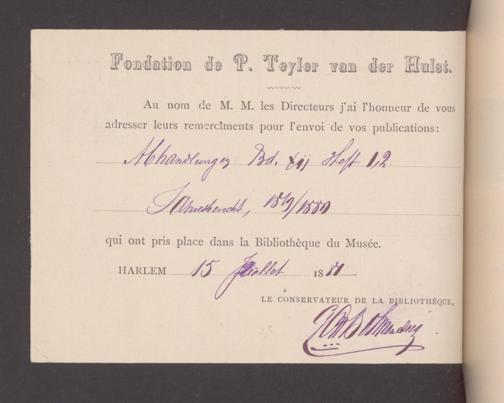 Fondation de P. Teyler van der Hulst.
Au nom de M. M. les Directeurs j'ai l'honneur de vous
adresser leurs remercîments pour l'envoi de vos publications:
Abhandlungen Bd. xij Heft 1,2.
Jahresbericht, 1879/1880
qui ont pris place dans la Bibliothèque du Musée.
HARLEM 15 Juillet 1881
LE CONSERVATEUR DE LA BIBLIOTHÈQUE,